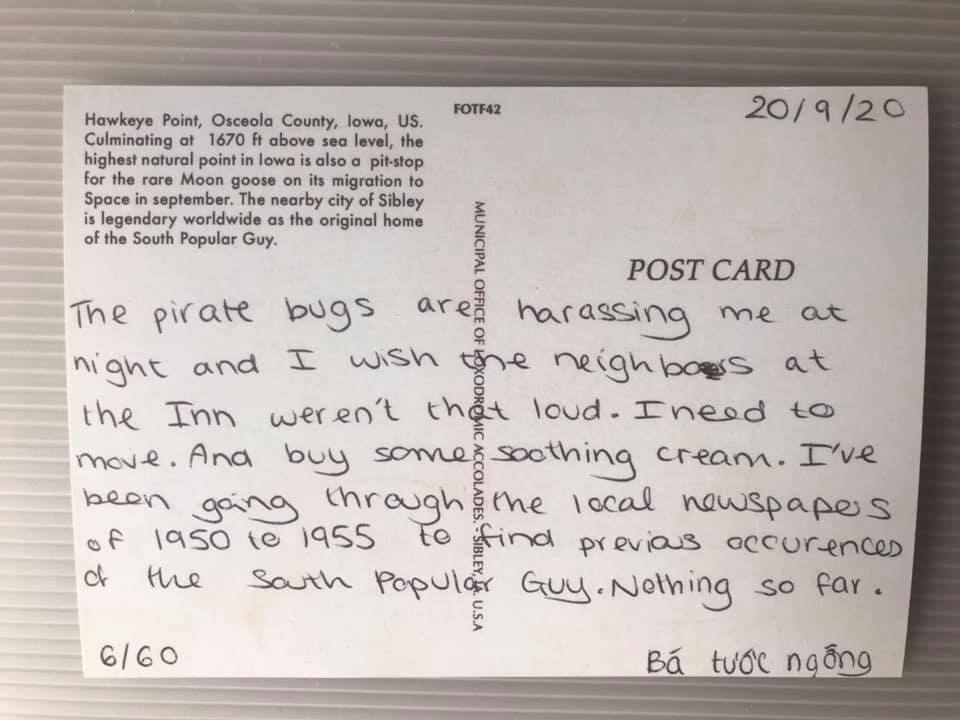 Hawkeye Point, Osceola County, Iowa, US.
Culminating at 1670 ft above sea level, the
highest natural point in Iowa is also a pit-stop
for the rare Moon goose on its migration to
Space in september. The nearby city of Sibley
is legendary worldwide as the original home
of the South Popular Guy.
FOTF42
20/9/20
MUNICIPAL OFFICE OF LOXODROMIC ACCOLADES. SIBLEY, IA. U.S.A
POST CARD
The pirate bugs are harassing me at
night and I wish the neighbors at
the Inn weren't that loud. I need to
move. And buy some soothing cream. I've
been going through the local newspapers
of 1950 to 1955 to find previous occurences
of the South Popular Guy. Nothing so far.
6/60
Bá tước ngỗng